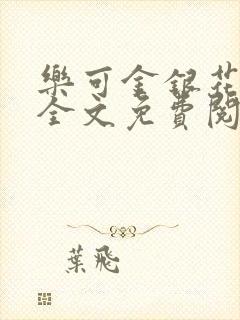 樂可金銀花
全文免費閱
葉飛